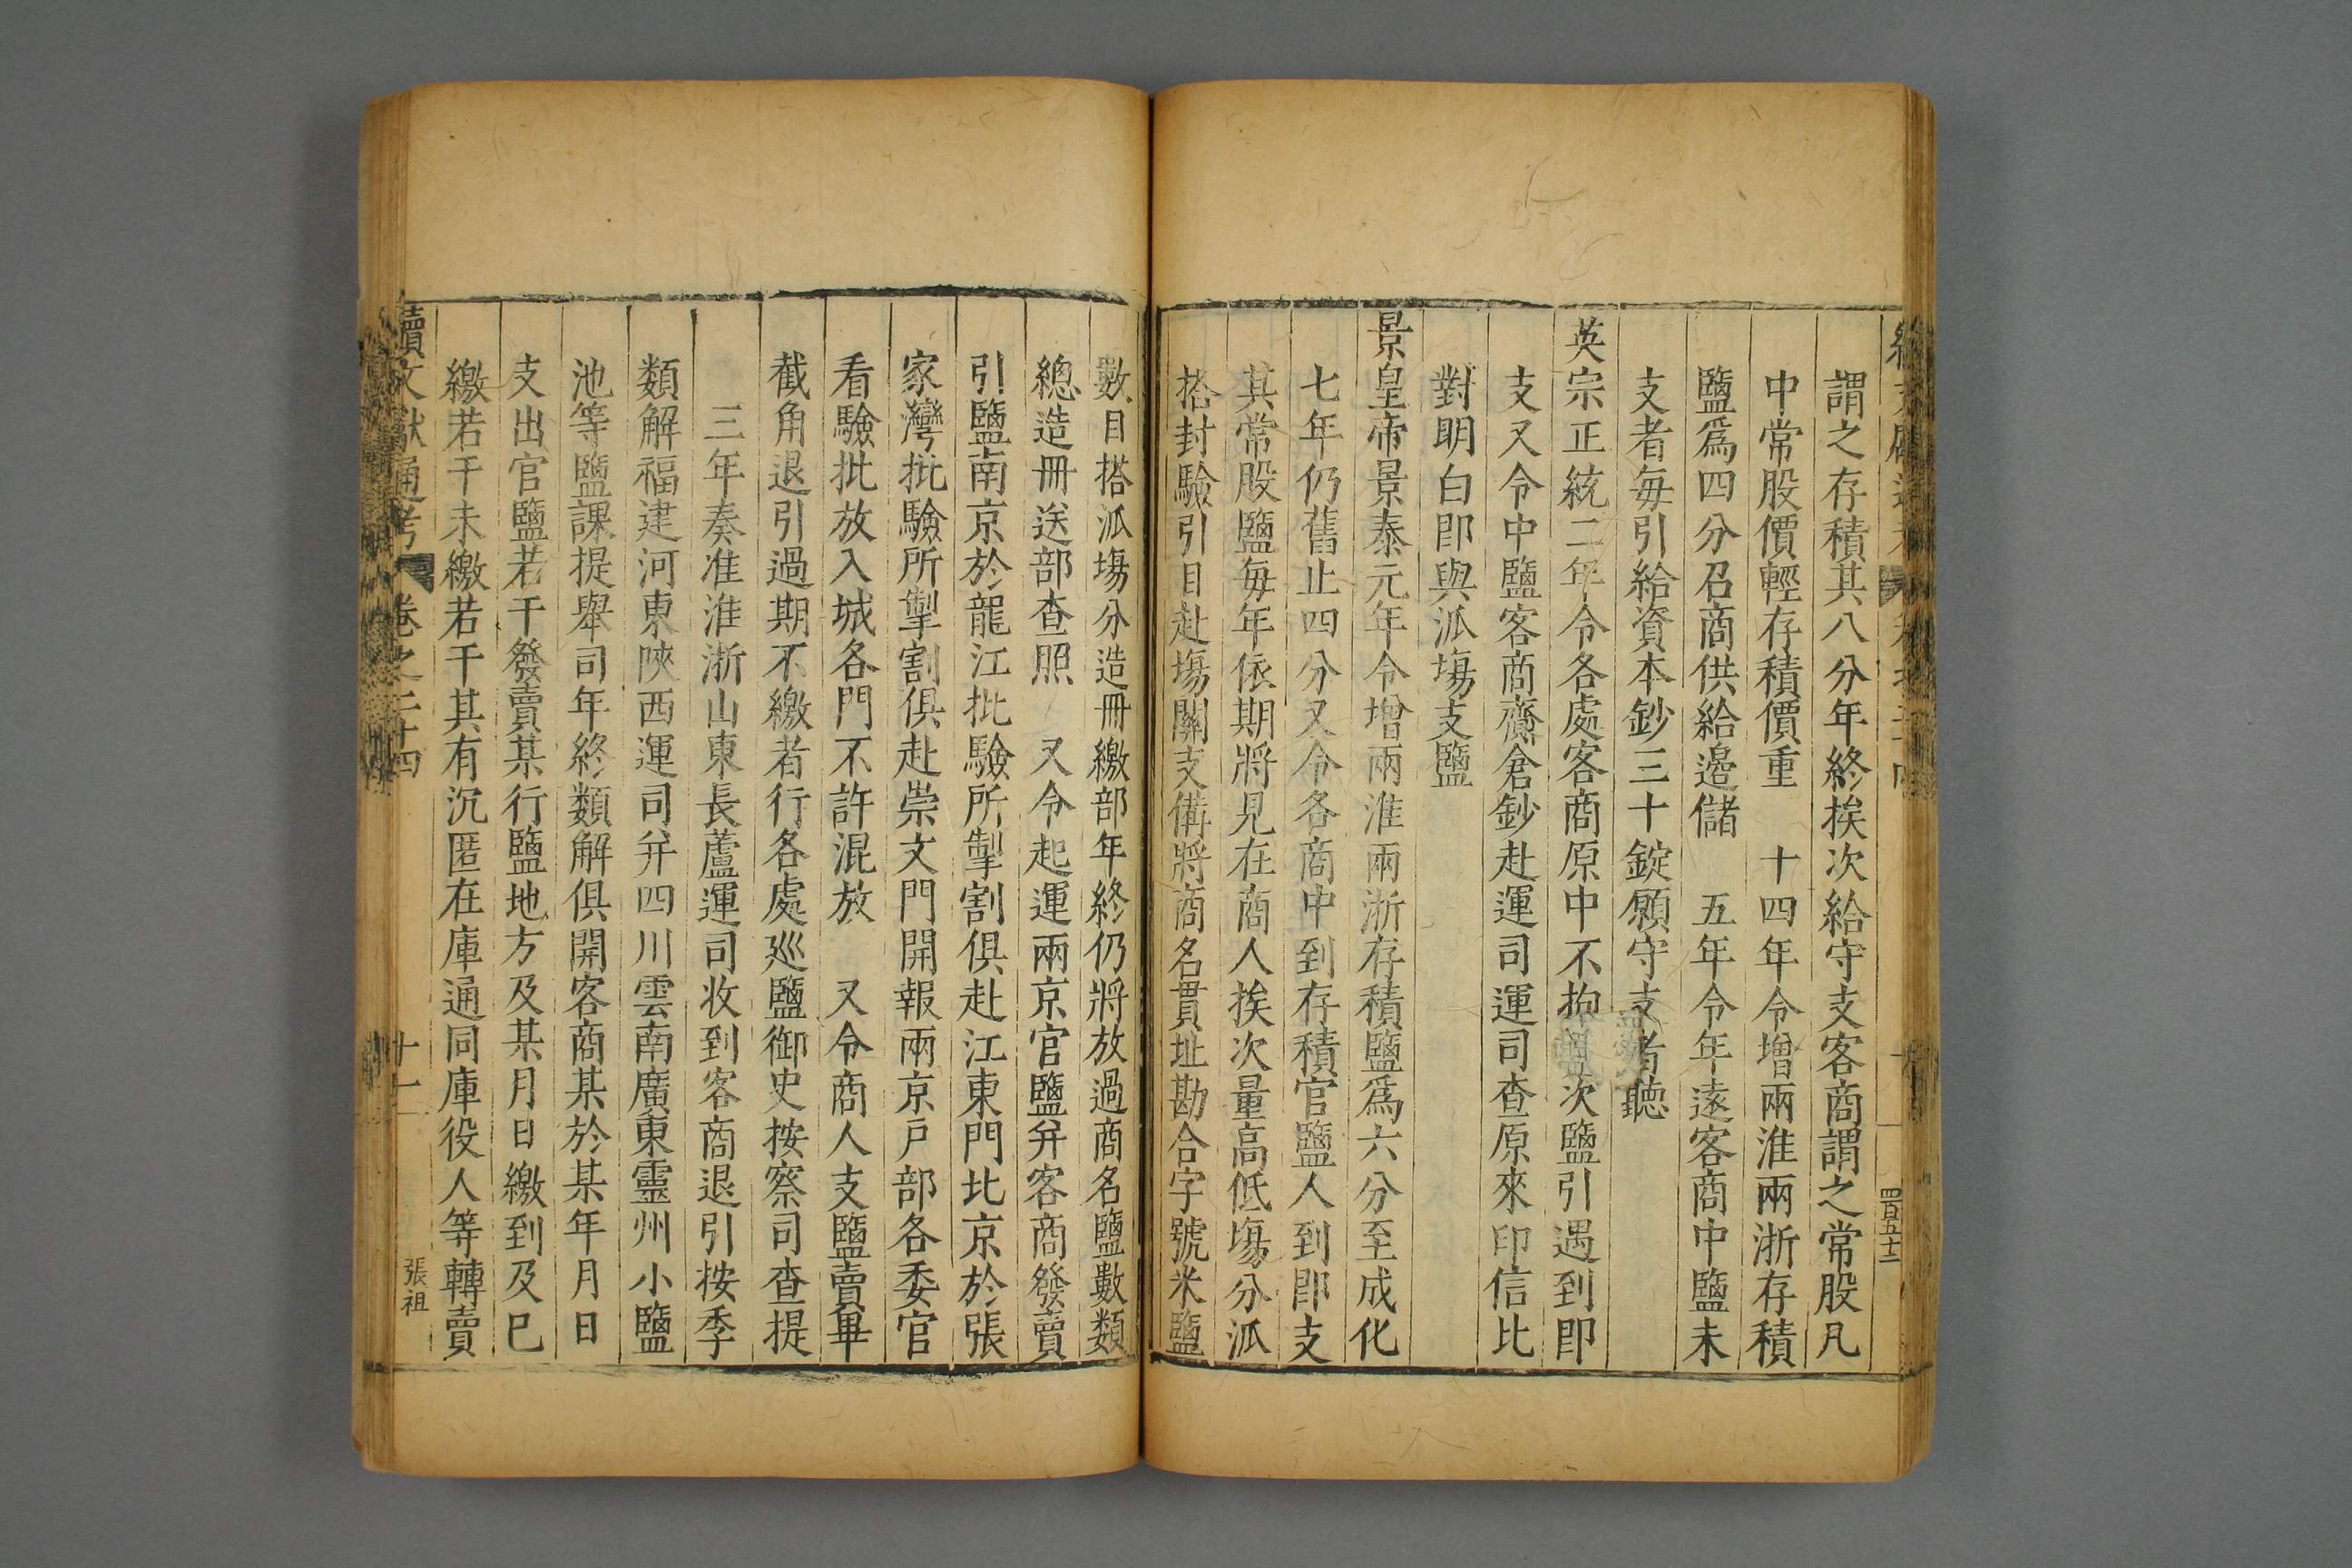 謂之存積其八分年終挨次給守支客商謂之常股凡
中常股價輕存積價重　十四年令增兩淮兩浙存積
鹽爲四分召商供給邉儲　五年令年逺客商中鹽未
支者每引給資本鈔三十錠願守支者聽
英宗正統二年令各處客商原中不拘次鹽引遇到即
支又令中鹽客商齎倉鈔赴運司運司查原來印信比
對明白即與派塲支鹽
景皇帝景泰元年令增兩淮兩浙存積鹽爲六分至成化
七年仍舊止四分又令各商中到存積官鹽人到即支
其常股鹽每年依期將見在商人挨次量高低塲分派
搭封驗引目赴塲關支備將商名貫址勘合字號米鹽
四百五十二
數目搭派塲分造冊繳部年終仍將放過商名鹽數類
總造冊送部查照　又令起運兩京官鹽并客商發賣
引鹽南京於龍江批驗所掣割俱赴江東門北京於張
家灣批驗所掣割俱赴崇文門開報兩京戶部各委官
看驗批放入城各門不許混放　又令商人支鹽賣畢
截角退引過期不繳者行各處巡鹽御史按察司查提
三年奏准淮浙山東長蘆運司收到客商退引按季
類解福建河東陝西運司并四川雲南廣東靈州小鹽
池等鹽課提舉司年終類解俱開客商某於某年月日
支出官鹽若干發賣某行鹽地方及某月日繳到及已
繳若干未繳若干其有沉匿在庫通同庫役人等轉賣
續文獻通考　卷之二十四　十一　張祖